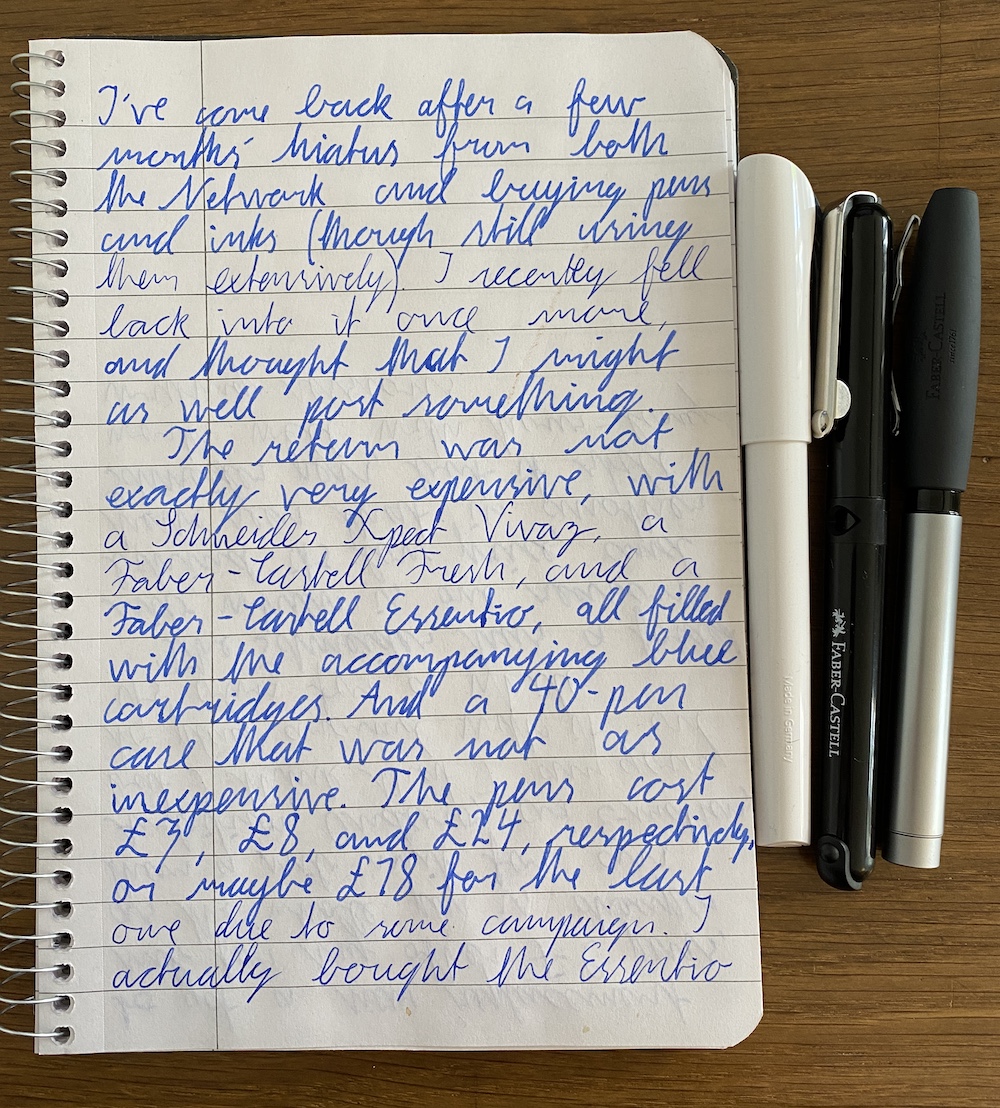 I've come back after a few
months' hiatus from both
the Network and buying pens
and inks (though still using
them extensively). I recently fell
back into it once more,
and thought that I might
as well post something.
The return was not
exactly very expensive, with
a Schneider Xpect Vivaz, a
Faber-Castell Fresh, and a
Faber-Castell Essentio, all filled
with the accompanying blue
cartridges. And a 40-pen
case that was not as
inexpensive. The pens cost
£3, £8, and £24, respectively,
or maybe £18 for the last
one due to some campaign. I
actually bought the Essentio
Made in Germany
FABER-CASTELL
FABER-CASTELL
since 1761